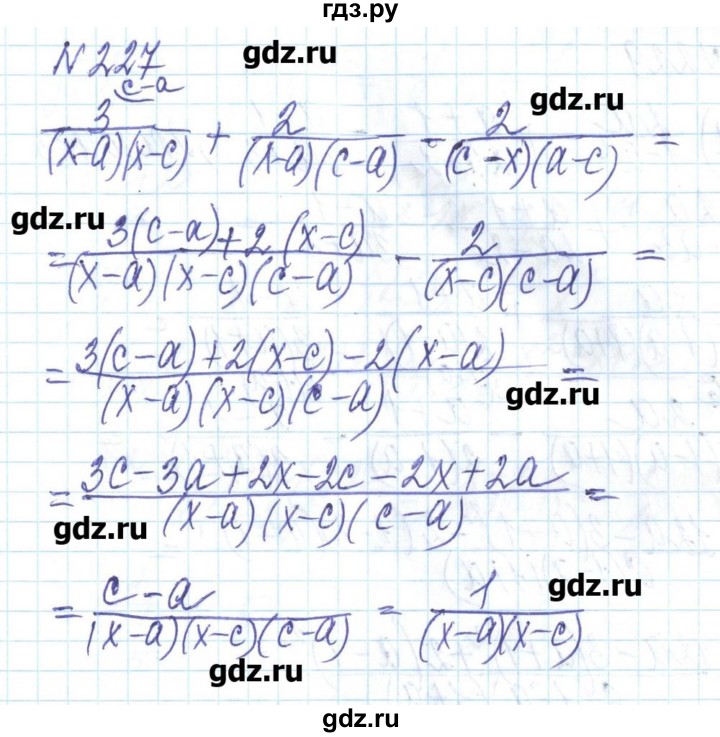 гдз.ру
N 227
gdz.ru
c-a
gdz.ru
3/((x-a)(x-c)) + 2/((x-a)(c-a)) - 2/((c-x)(a-c)) =
gdz.ru
= (3(c-a)+2(x-c))/((x-a)(x-c)(c-a)) - 2/((x-c)(c-a)) =
= (3(c-a)+2(x-c)-2(x-a))/((x-a)(x-c)(c-a)) =
gdz.ru
= (3c-3a+2x-2c-2x+2a)/((x-a)(x-c)(c-a)) =
gdz.ru
gdz.ru
= (c-a)/((x-a)(x-c)(c-a)) = 1/((x-a)(x-c))
gdz.ru
gdz.ru